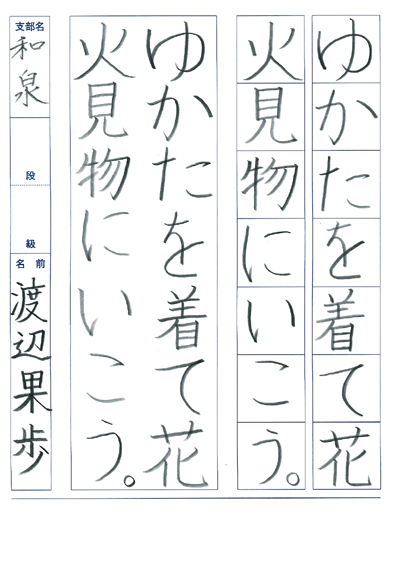 ゆかたを着て花
火見物にいこう。
ゆかたを着て花
火見物にいこう。
支部名
和泉
段
級
名前
渡辺果歩